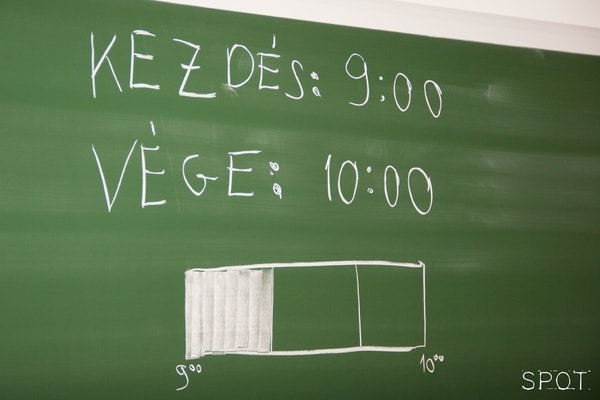 KEZDÉS: 9:00
VÉGE: 10:00
9⁰⁰ 10⁰⁰
SPOT